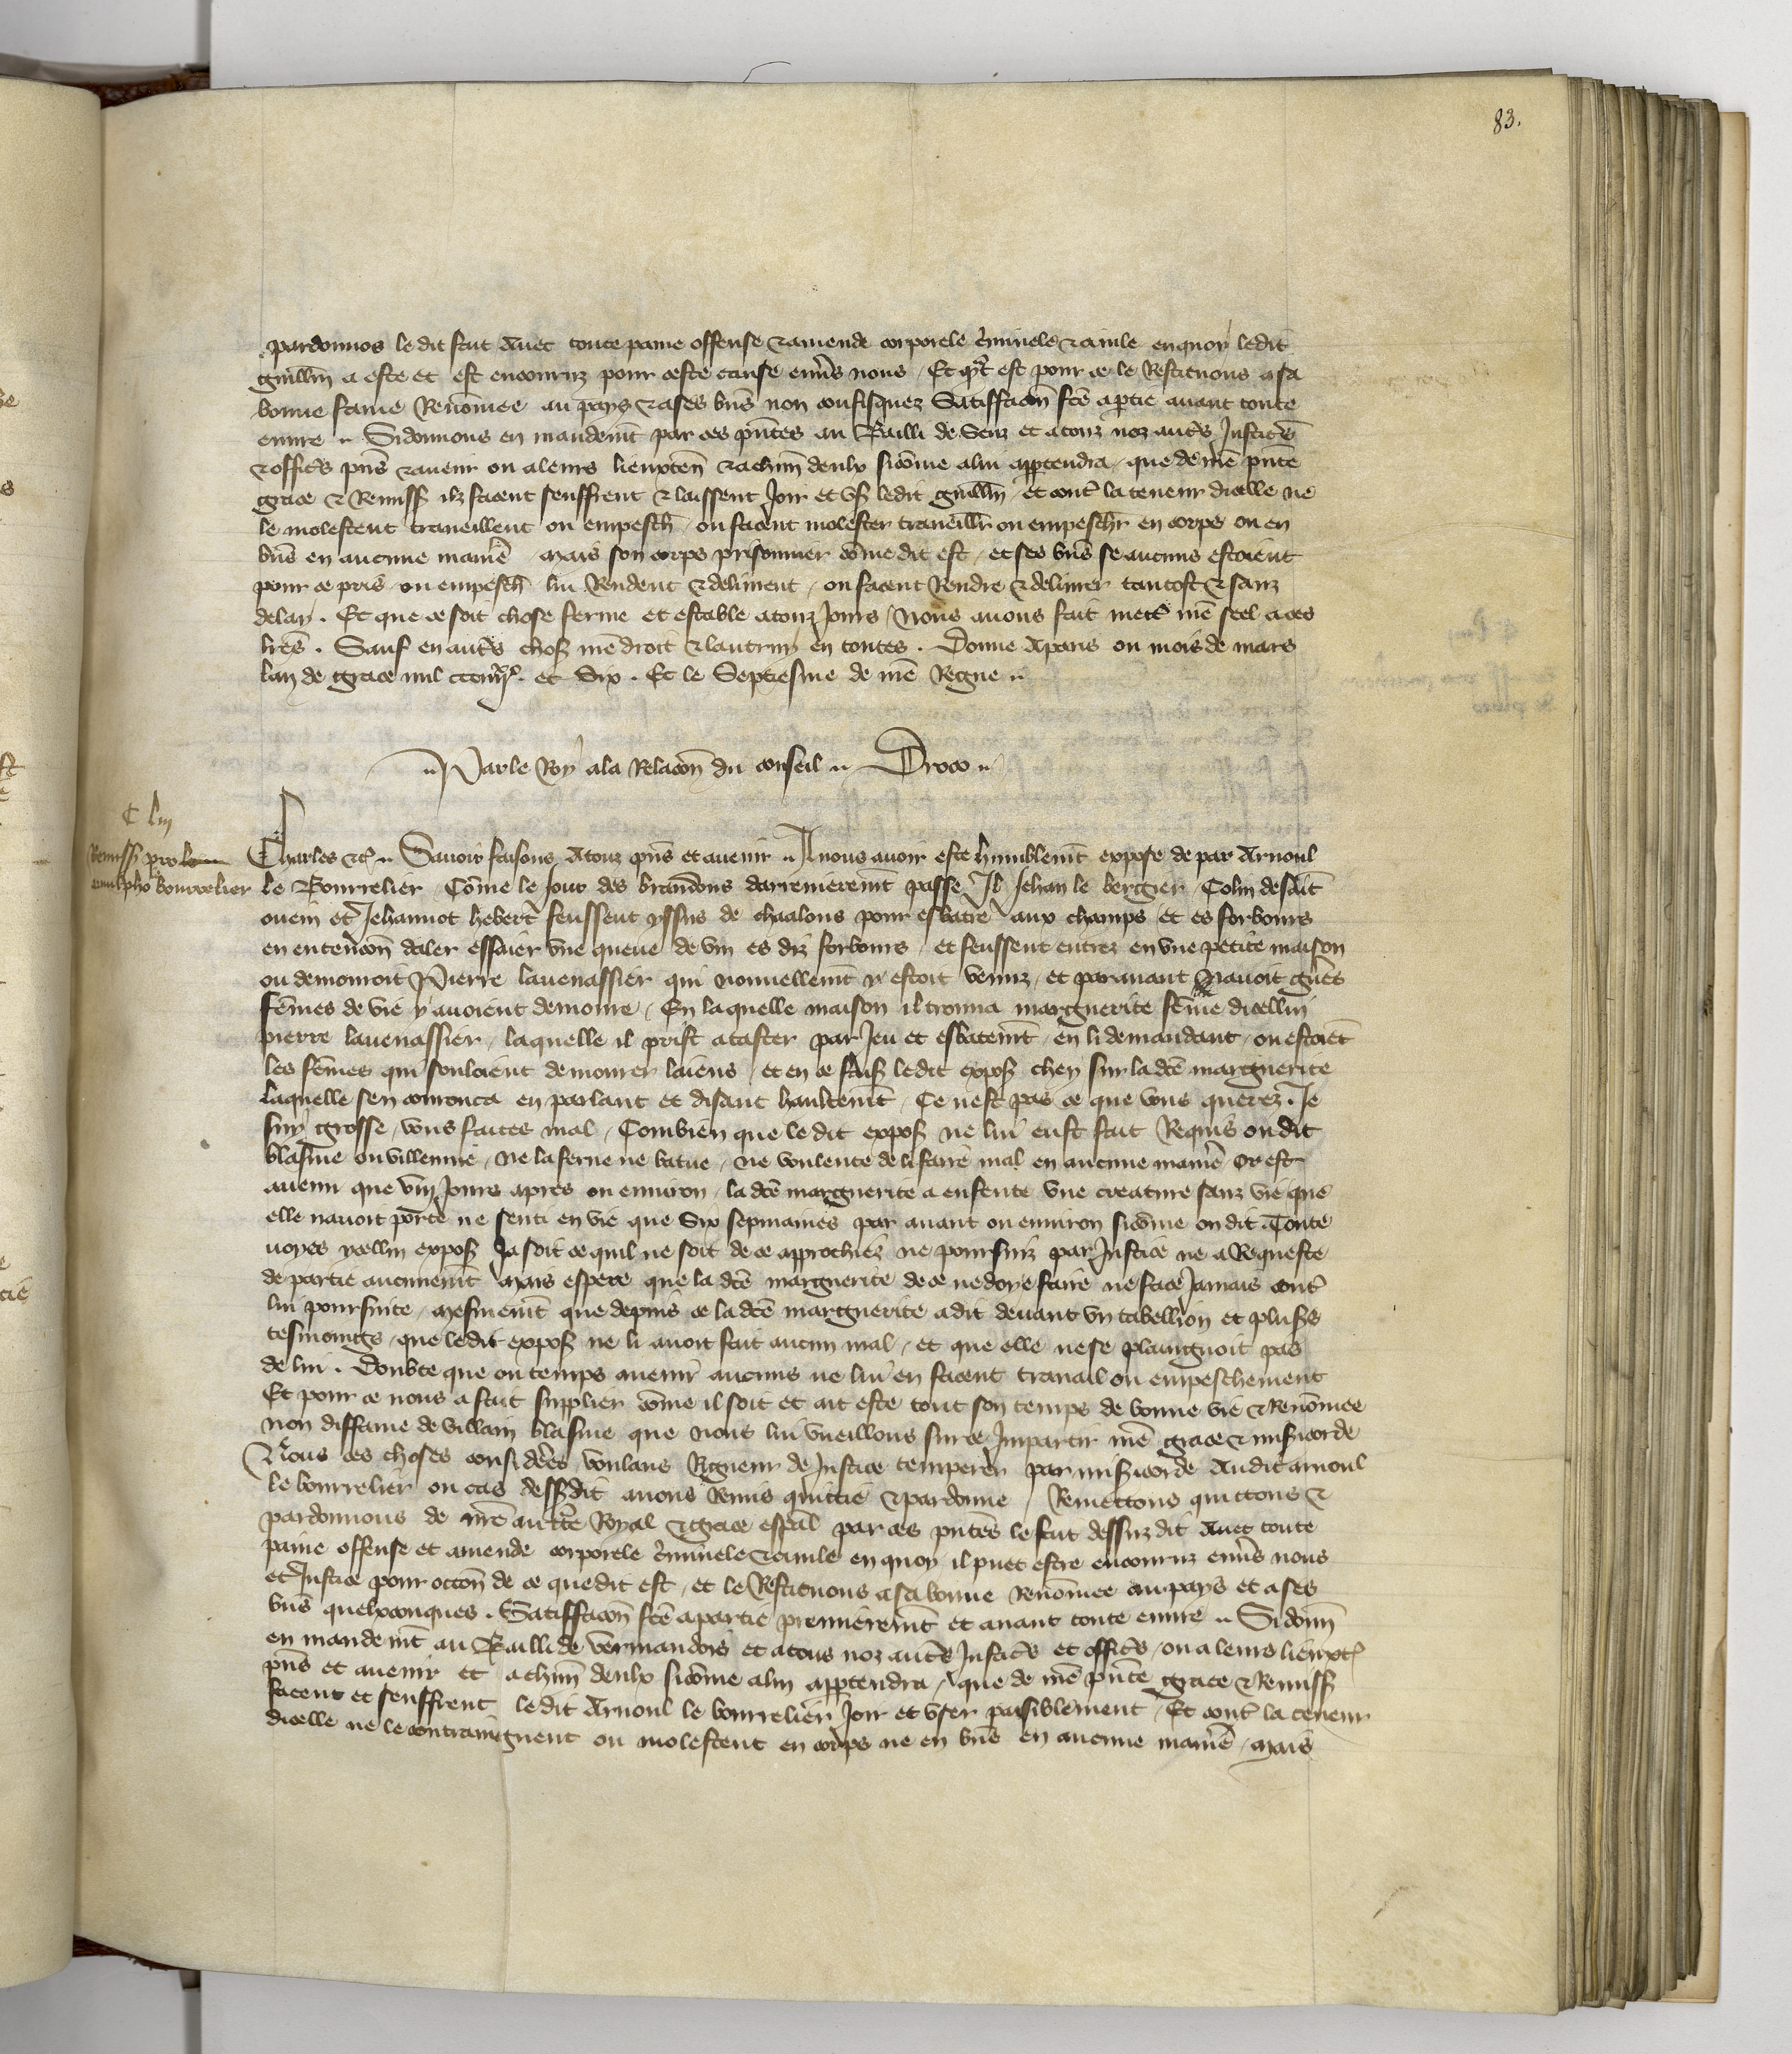 83.
pardonnos le dit fait Avec toute paine offense & amende corporele c'iminele & civile en quoy ledit
guill'm a este et est encouruz pour ceste cause env's nous / Et q'ct est pour ce le Restituons a sa
bonne fame Renōmee au pays & a ses bn̄s non confisquez Satiffacōn fc̄e a p'tie avant toute
euvre .. Si donnons en mandem̄t par ces pn̄tes au Bailli de Senz et a touz noz aut's Justic's
& offic's pn̄s & avenir ou a leurs lieuxten̄ & a chūn deulx sicōme a lui app'tendra / que de n̄re pn̄te
grace & Remiss' ilz facent seuffrent & laissent Joir et us' ledit guill'm / et cont' la teneur dicelle ne
le molestent traveillent ou empesch' / ou facent molester traveill'r ou empesch'r en corps ou en
bn̄s en aucune manie'e mais son corps prisonnier cōme dit est / et ses bn̄s se aucuns estoient
pour ce pris ou empesch' lui Rendent & delivrent / ou facent Rendre & delivrer tantost & sanz
delay . Et que ce soit chose ferme et estable a touz Jours / Nous avons fait mett' n̄re seel a ces
lr̄es . Sauf en aut's chos' n̄re droit & lautruy en toutes . Donne A paris ou mois de mars
lan de grace mil ccc iiij xx. et Six . Et le Septiesme de n̄re Regne ..
.. Par le Roy a la Relacōn du conseil .. Droco ..
C liij
Remiss' pro
arnulpho bourrelier
Charles &c' .. Savoir faisons A touz pn̄s et avenir .. A nous avoir este humblem̄t expose de par Arnoul
le Bourrelier / Cōme le Jour des brandons darrenierem̄t passe Il Jehan le bergier / Colin de saīt
ouein et Jehannot hebert feussent yssus de chaalons pour esbatre aux champs et es forbours
en entencōn daler essaier une queue de vin es diz forbours / et feussent entrez en une petite maison
ou demouroit Pierre lavenassier qui nouvellem̄t y estoit venuz / et paravant navoit gu'es
fēmes de vie y avoient demoure / En laquelle maison il trouva marguerite fēme dicellui
pierre lavenassier / laquelle il prist a taster par Jeu et esbatem̄t / en li demandant / ou estoiēt
les fēmes qui souloient demourer laiens / et en ce fais' ledit expos' chey sur la dc̄e marguerite
laquelle sen courouca en parlant et disant haultem̄t / Ce nest pas ce que vous querez . Je
suy grosse / vous faites mal / Combien que le dit expos' ne lui eust fait Requis ou dit
blasme ou villennie / ne la ferue ne batue / ne voulente de li faire mal en aucune manie'e Or est
avenu que viij Jours apres ou environ / la dc̄e marguerite a enfente une creature sanz vie que
elle navoit porte ne senti en vie que Six sepmaines par avant ou environ sicōme on dit . Toute
voyes ycellui expos' Ja soit ce quil ne soit de ce approchiez ne poursuiz par Justice ne a Requeste
de partie aucunem̄t Mais espere que la dc̄e marguerite de ce ne doye faire ne face Jamais cont'
lui poursuite / mesmem̄t que depuis ce la dc̄e marguerite a dit devant un tabellion et plus's
tesmoings / que ledit expos' ne li avoit fait aucun mal / et que elle ne se plaingnoit pas
de lui . Doubte que ou temps avenir aucuns ne lui en facent travail ou empeschement
Et pour ce nous a fait supplier cōme il soit et ait este tout son temps de bonne vie & Renōmee
non diffame de villain blasme que nous lui vueillons sur ce Impartir n̄re grace & mis'icorde
Nous ces choses consid'ees voulans Rigueur de Justice temperer par mis'icorde Audit arnoul
le bourrelier ou cas dess'dit avons Remis quittie & pardonne / Remettons quittons &
pardonnons de n̄re auct'te Royal & grace esp̄al par ces pn̄tes le fait dessuz dit Avec toute
paine offense et amende corporele c'iminele & civile en quoy il puet estre encouruz env's nous
et Justice pour occōn de ce que dit est / et le Restituons a sa bonne Renōmee au pays et a ses
bn̄s quelxconques . Satiffacōn fc̄e a partie premierem̄t et avant toute euvre .. Si donn̄
en mandem̄t au Bailli de vermandois et a tous noz aut's Justic's et offic's / ou a leurs lieuxt'
pn̄s et avenir et a chūn deulx sicōme a lui app'tendra / que de n̄re pn̄te grace & Remiss'
facent et seuffrent le dit Arnoul le bourrelier Joir et user paisiblement / Et cont' la teneur
dicelle ne le contraingnent ou molestent en corps ne en bn̄s en aucune manie'e / mais